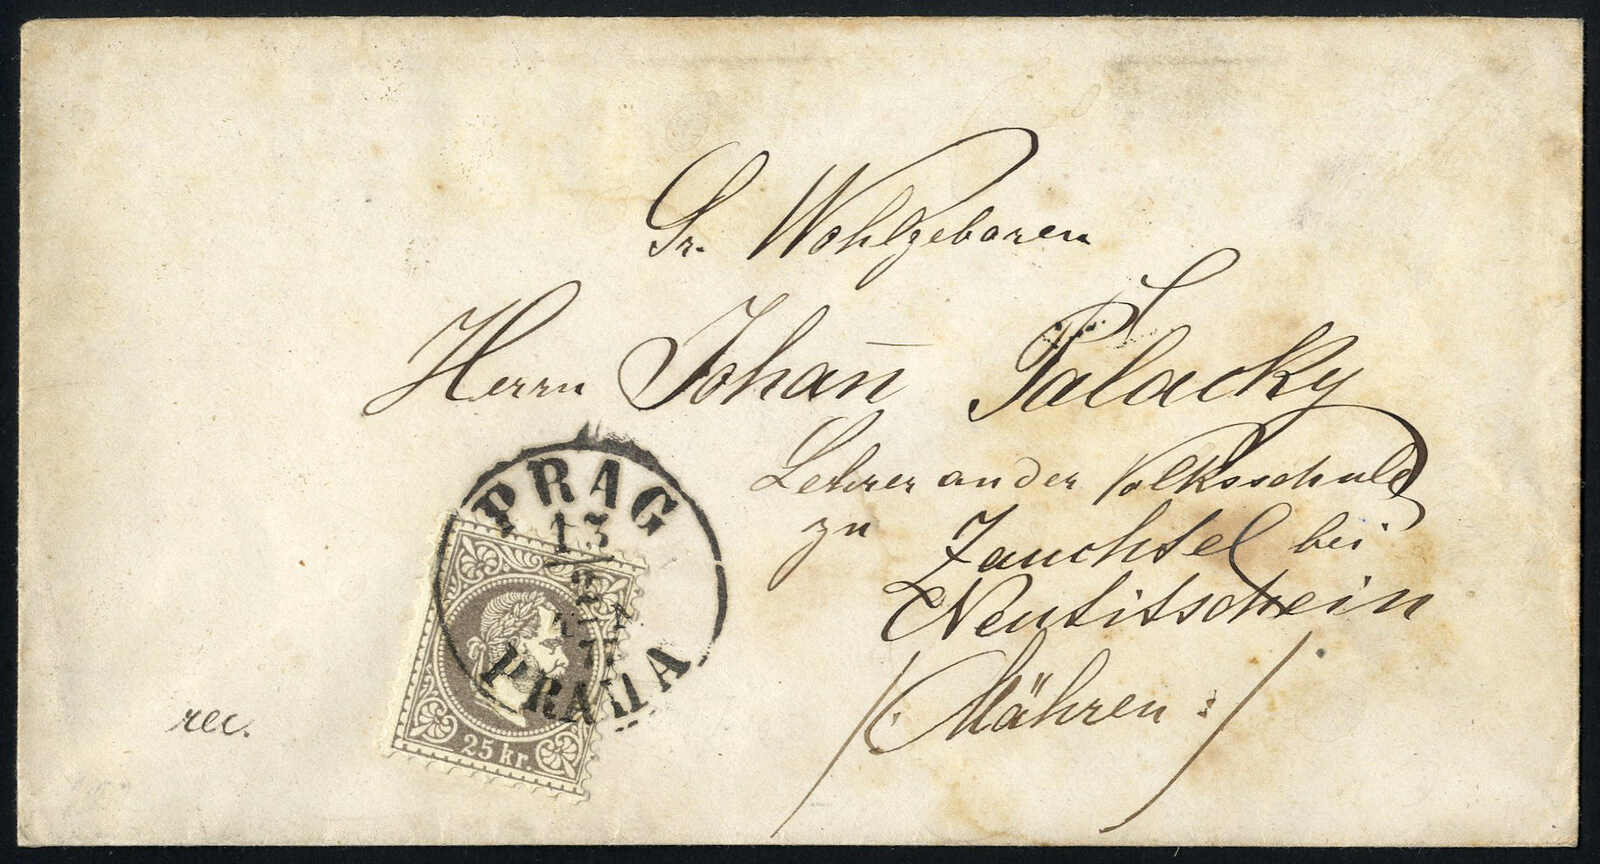 Sr. Wohlgeboren
Herrn Johan̄ Palacky
Lehrer an der Volksschule
zu Zauchtel bei
Neutitschein
/: Mähren :/
PRAG
13
2
PRAHA
rec.
25 kr.